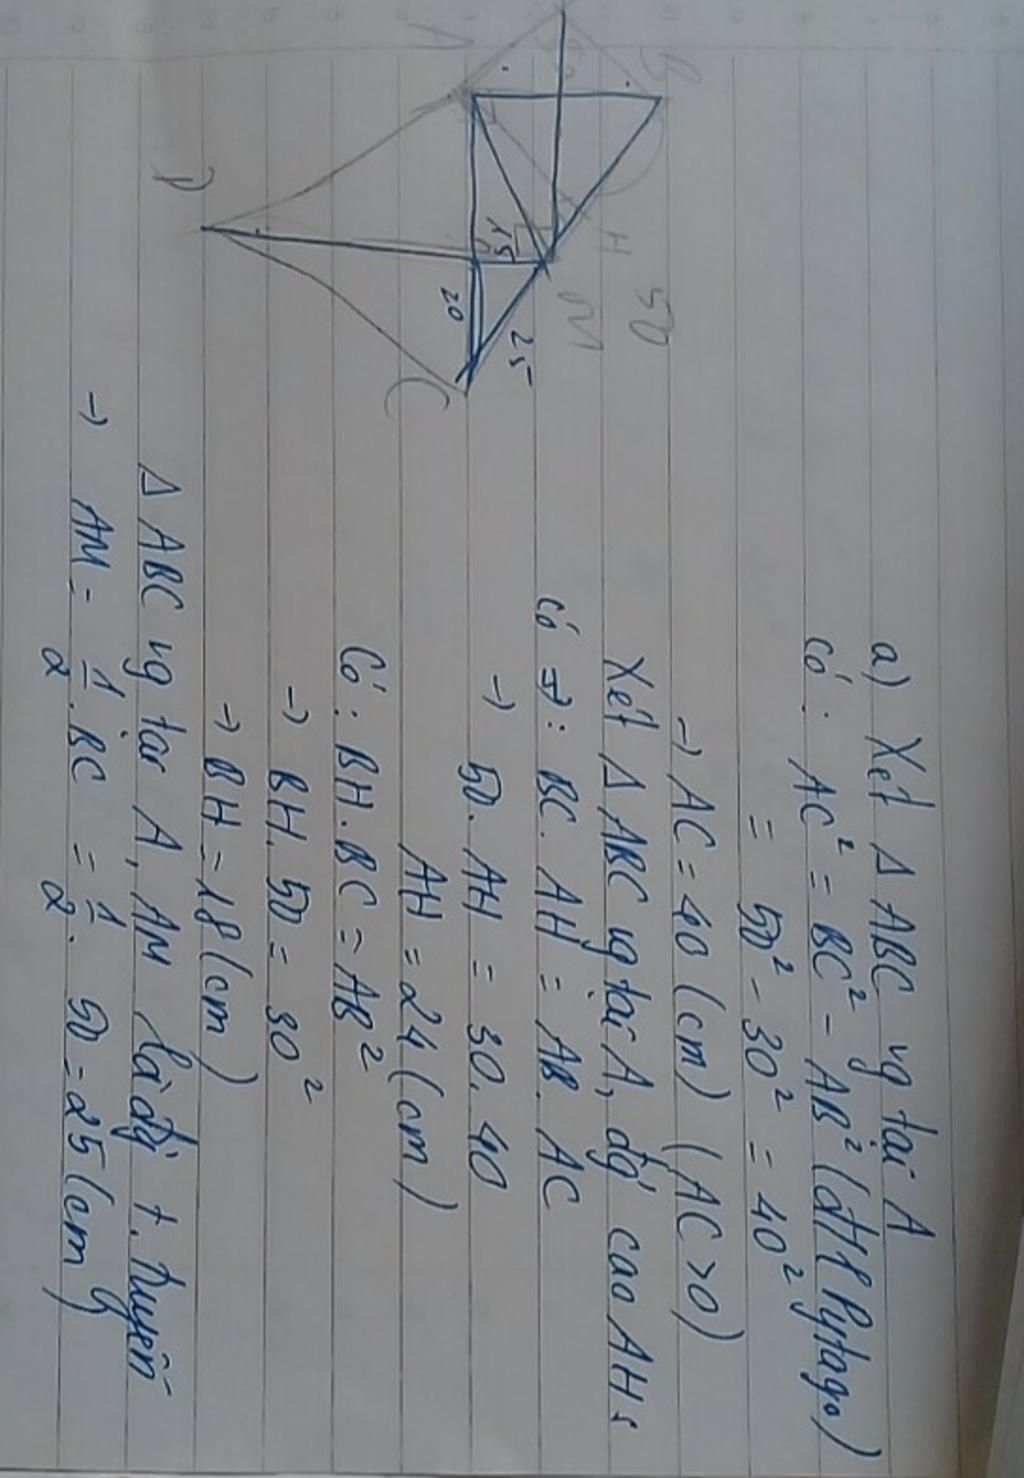 B
A
H
M
50
D
C
15
20
25
a) Xét Δ ABC vg tại A
có: AC² = BC² - AB² (đlí Pytago)
= 50² - 30² = 40²
→ AC = 40 (cm) (AC > 0)
Xét Δ ABC vg tại A, đg cao AH:
có: BC. AH = AB. AC
→ 50. AH = 30. 40
AH = 24 (cm)
Có: BH. BC = AB²
→ BH. 50 = 30²
→ BH = 18 (cm)
Δ ABC vg tại A, AM là đg t. tuyến
→ AM = 1/2 . BC = 1/2 . 50 = 25 (cm)